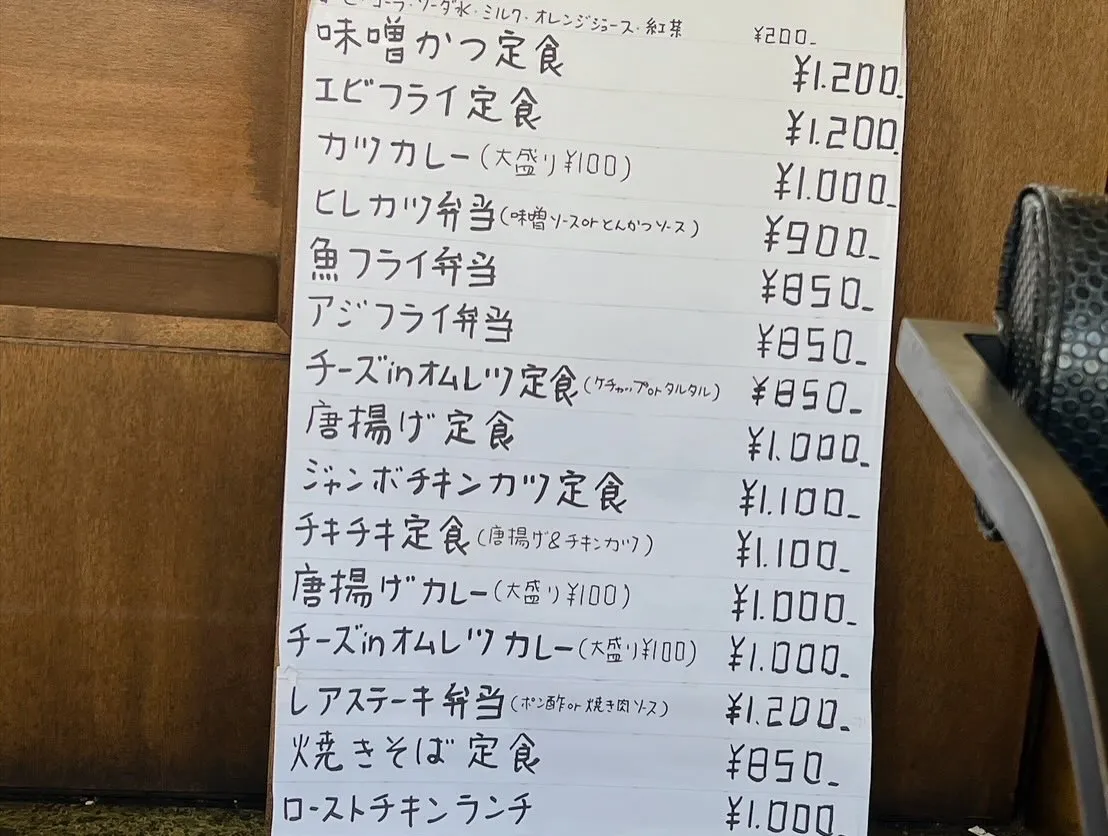 コーラ・ソーダ水・ミルク・オレンジジュース・紅茶 ¥200-
味噌かつ定食 ¥1.200-
エビフライ定食 ¥1.200-
カツカレー(大盛り¥100) ¥1.000-
ヒレカツ弁当(味噌ソースorとんかつソース) ¥900-
魚フライ弁当 ¥850-
アジフライ弁当 ¥850-
チーズinオムレツ定食(ケチャップorタルタル) ¥850-
唐揚げ定食 ¥1.000-
ジャンボチキンカツ定食 ¥1.100-
チキチキ定食(唐揚げ&チキンカツ) ¥1.100-
唐揚げカレー(大盛り¥100) ¥1.000-
チーズinオムレツカレー(大盛り¥100) ¥1.000-
レアステーキ弁当(ポン酢or焼き肉ソース) ¥1.200-
焼きそば定食 ¥850-
ローストチキンランチ ¥1.000-